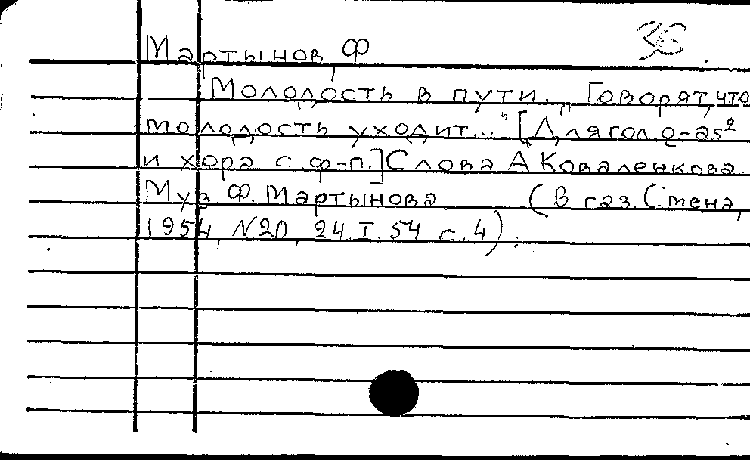 Мартынов, Ф 36
Молодость в пути. "Говорят, что
молодость уходит..." [Для гол. a-as²
и хора с ф-п.] Слова А Коваленкова
Муз Ф. Мартынова (В газ. Смена,
1954, N20, 24.I.54 с.4).